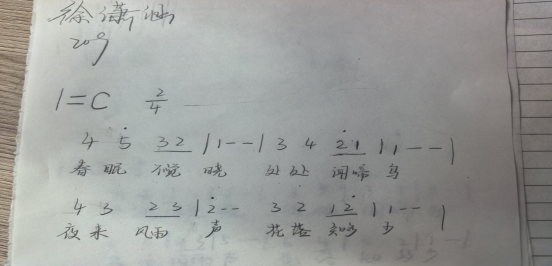 徐潇涵
209
1=C 2/4
4 5̇ 32 | 1 - - | 3 4 2̇1 | 1 - - |
春眠 不觉 晓 处处 闻啼 鸟
4 3 23 | 2̇ - - 3 2 12̇ | 1 - - |
夜来 风雨 声 花落 知多 少